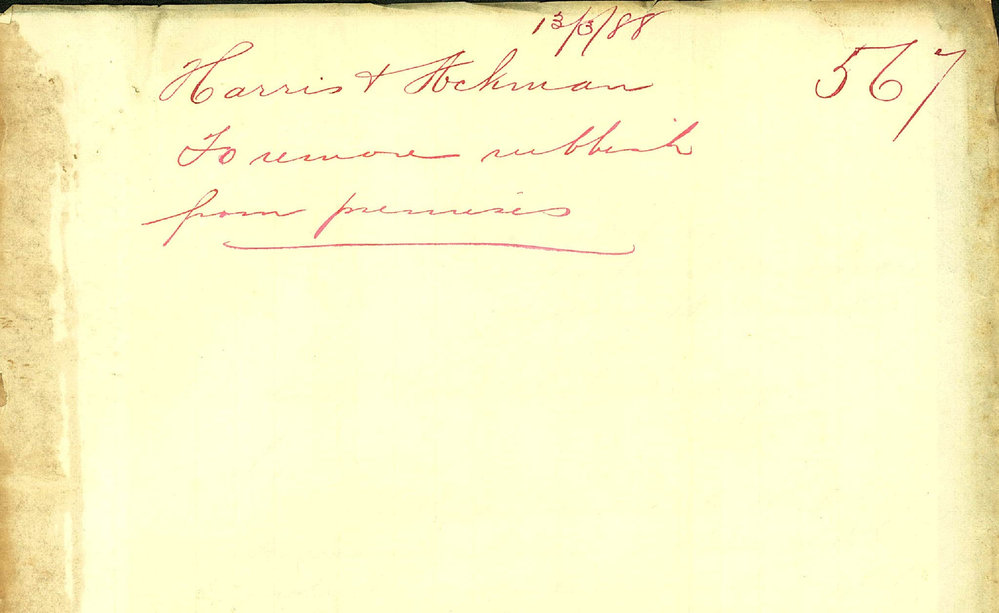 13/3/88
567
Harris & Ackman
To remove rubbish
from premises